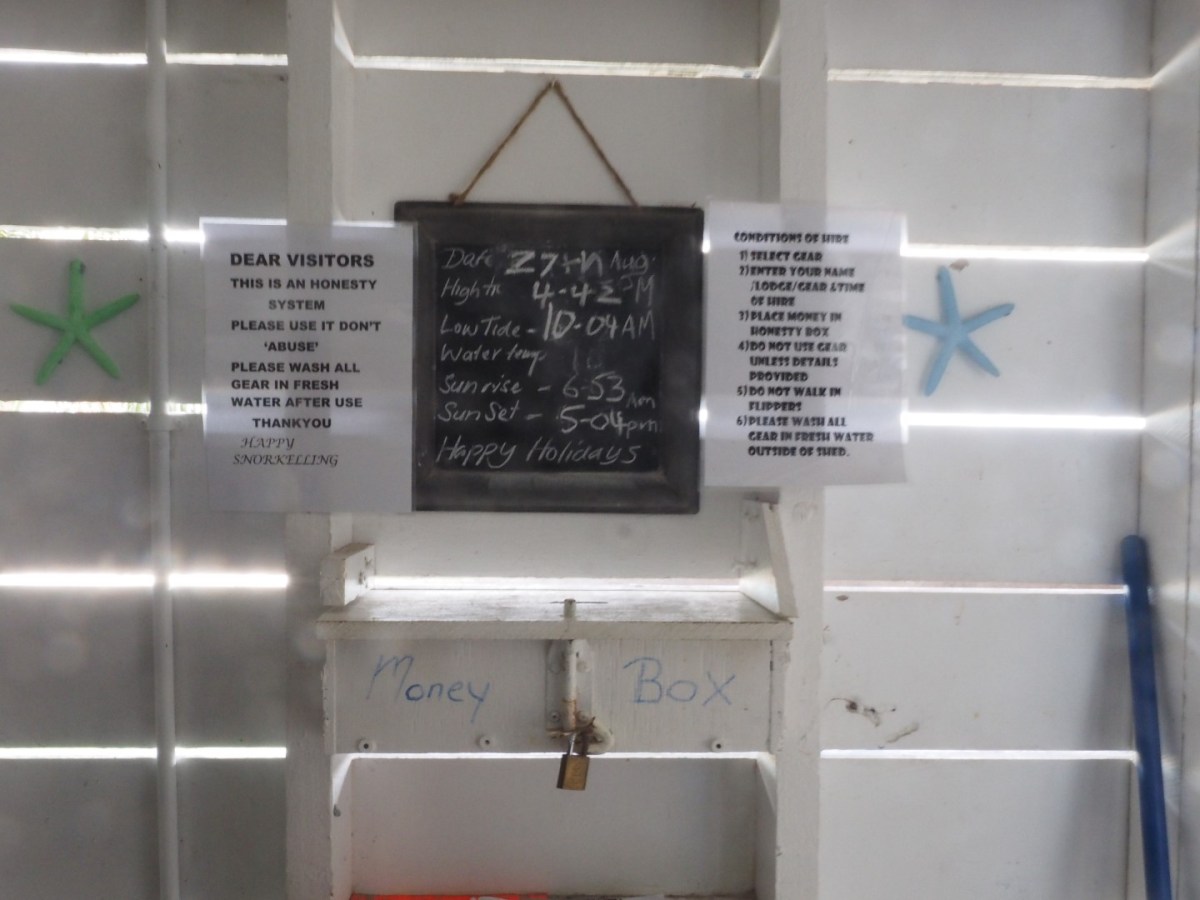 DEAR VISITORS
THIS IS AN HONESTY
SYSTEM
PLEASE USE IT DON'T
'ABUSE'
PLEASE WASH ALL
GEAR IN FRESH
WATER AFTER USE
THANKYOU
HAPPY
SNORKELLING
Date 27th Aug.
High 4-42 PM
Low Tide - 10-04 AM
Water temp
Sunrise - 6-53 Am
Sun Set - 5-04 pm
Happy Holidays
CONDITIONS OF HIRE
1) SELECT GEAR
2) ENTER YOUR NAME
/LODGE/GEAR &TIME
OF HIRE
3) PLACE MONEY IN
HONESTY BOX
4) DO NOT USE GEAR
UNLESS DETAILS
PROVIDED
5) DO NOT WALK IN
FLIPPERS
6) PLEASE WASH ALL
GEAR IN FRESH WATER
OUTSIDE OF SHED.
Money Box